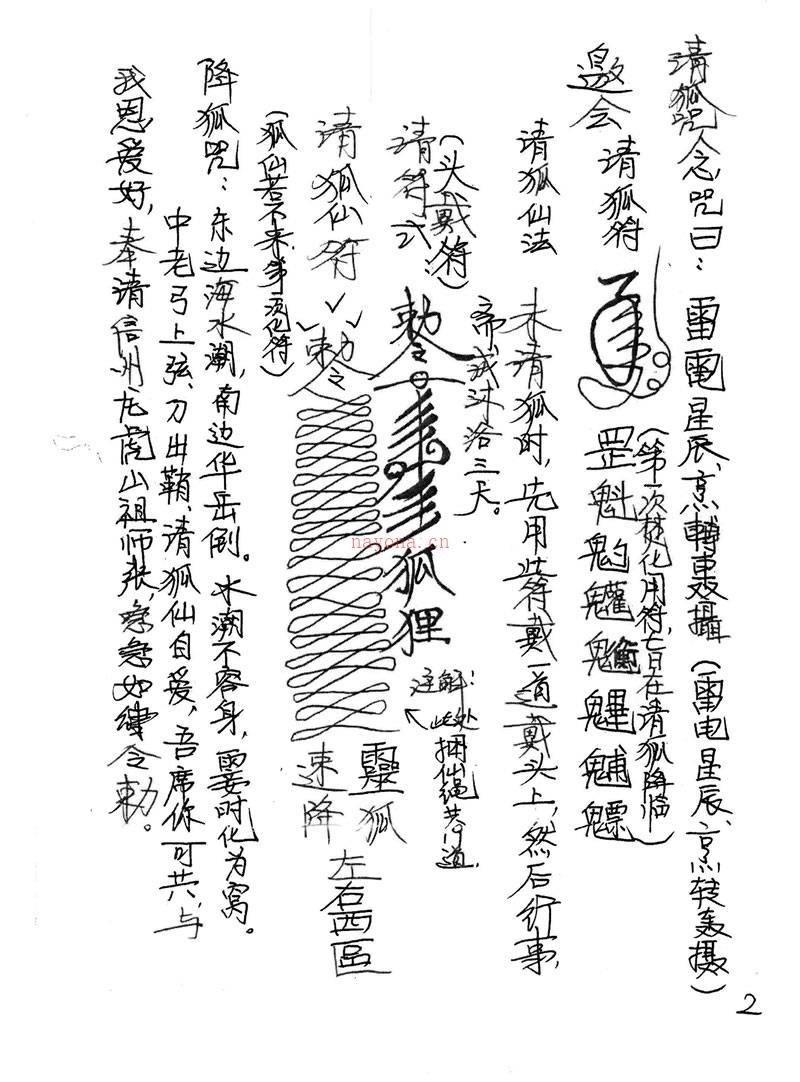 请狐咒念咒曰：雷電星辰、烹轉轟攝（雷电星辰、烹转轰摄）
邀会 请狐符
罡魁魈魓魒
（第一次焚化用符，七日在请狐降临）
请狐仙法 未请狐时，先用此符戴一道戴头上，然后行事，
斋戒沐浴三天。
（头戴符）
请符式 敕令 狐狸
注解：
此处
捆仙绳共 道
请狐仙符 敕令
靈狐
速降
左右西區
（狐仙若不来第 次化符）
降狐咒：东边海水潮，南边华岳倒。水潮不容身，霎时化为窝。
中老弓上弦、刀出鞘，请狐仙自爱，吾席你可共，与
我恩爱好，奉请信州龙虎山祖师张，急急如律令敕。
2
nayona.cn